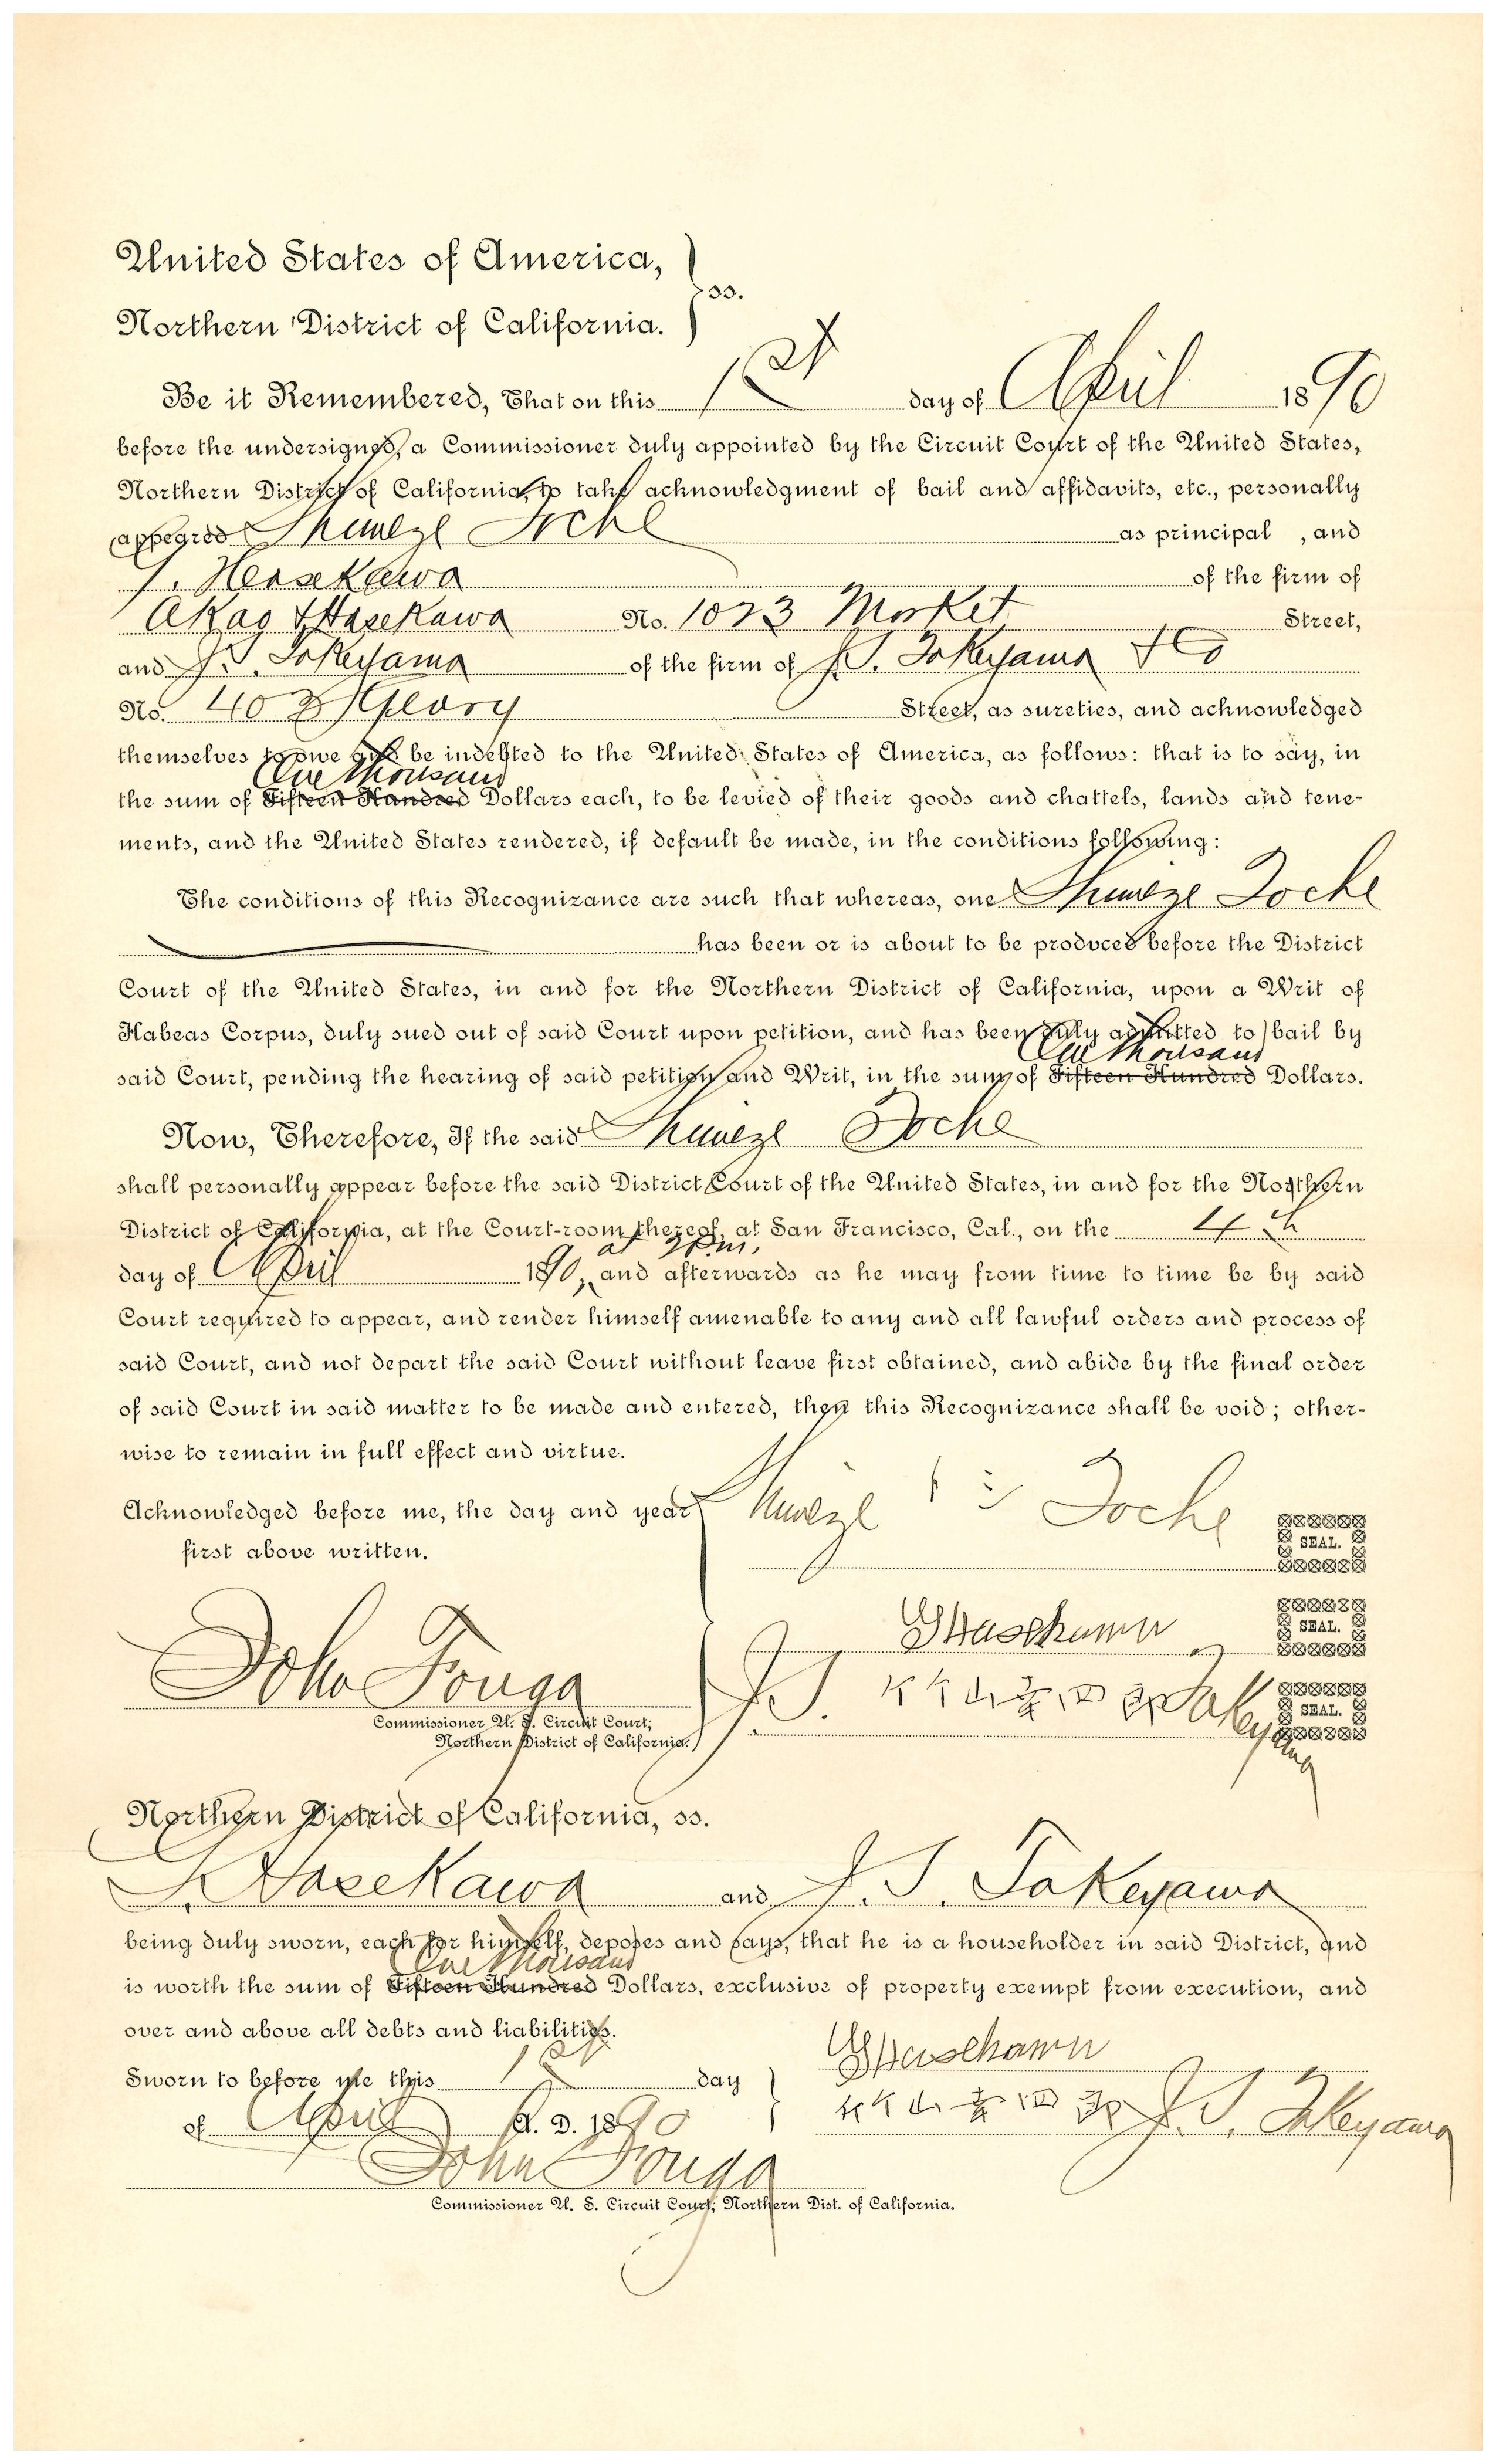 United States of America,
Northern District of California. } ss.
Be it Remembered, That on this 1st day of April 1890
before the undersigned, a Commissioner duly appointed by the Circuit Court of the United States,
Northern District of California, to take acknowledgment of bail and affidavits, etc., personally
appeared Shimeze Toche as principal , and
Hasekawa of the firm of
Akao & Hasekawa No. 1023 Market Street,
and J. T. Takeyama of the firm of J. T. Takeyama & Co
No. Geary Street, as sureties, and acknowledged
themselves to owe and be indebted to the United States of America, as follows: that is to say, in
One thousand
the sum of Fifteen Hundred Dollars each, to be levied of their goods and chattels, lands and tene-
ments, and the United States rendered, if default be made, in the conditions following:
The conditions of this Recognizance are such that whereas, one Shimeze Toche
has been or is about to be produced before the District
Court of the United States, in and for the Northern District of California, upon a Writ of
Habeas Corpus, duly sued out of said Court upon petition, and has been duly admitted to bail by
One thousand
said Court, pending the hearing of said petition and Writ, in the sum of Fifteen Hundred Dollars.
Now, Therefore, If the said Shimeze Toche
shall personally appear before the said District Court of the United States, in and for the Northern
District of California, at the Court-room thereof, at San Francisco, Cal., on the 4th
at 2 p.m.,
day of April 1890, and afterwards as he may from time to time be by said
Court required to appear, and render himself amenable to any and all lawful orders and process of
said Court, and not depart the said Court without leave first obtained, and abide by the final order
of said Court in said matter to be made and entered, then this Recognizance shall be void; other-
wise to remain in full effect and virtue.
Acknowledged before me, the day and year Shimeze Toche SEAL.
first above written.
Hasekawa SEAL.
John Fouga J. T. Takeyama SEAL.
Commissioner U. S. Circuit Court,
Northern District of California.
Northern District of California, ss.
Hasekawa and J. T. Takeyama
being duly sworn, each for himself, deposes and says, that he is a householder in said District, and
One thousand
is worth the sum of Fifteen Hundred Dollars, exclusive of property exempt from execution, and
over and above all debts and liabilities.
Hasekawa
Sworn to before me this 1st day
of April A. D. 1890 J. T. Takeyama
John Fouga
Commissioner U. S. Circuit Court, Northern Dist. of California.